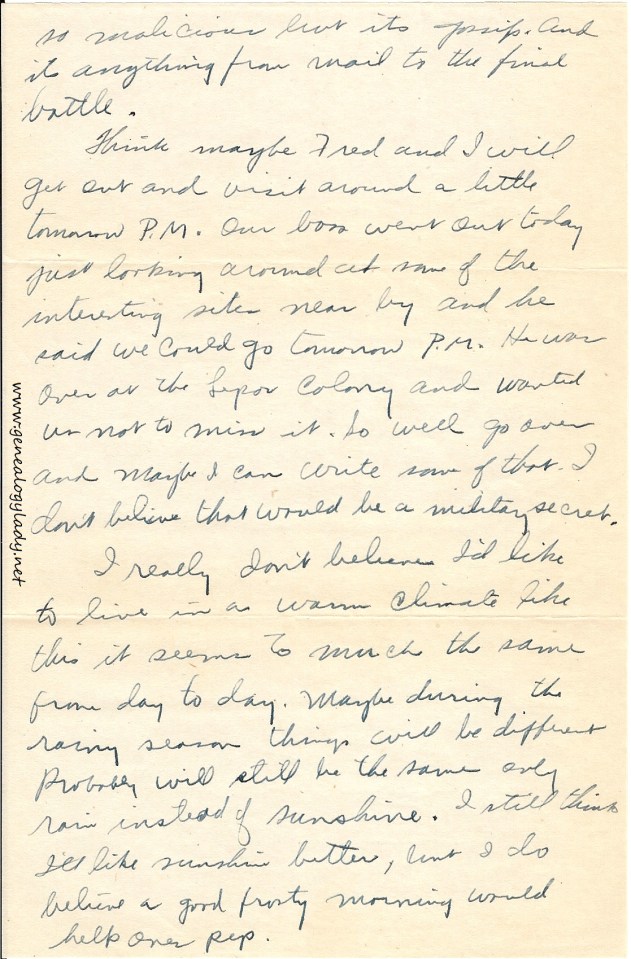 so malicious but its gossip. And
its anything from mail to the final
battle.
Think maybe Fred and I will
get out and visit around a little
tomorrow P.M. Our boss went out today
just looking around at some of the
interesting sites near by and he
said we could go tomorrow P.M. He was
over at the Lepor Colony and wanted
us not to miss it. So well go over
and maybe I can write some of that. I
don't believe that would be a military secret.
I really don't believe I'd like
to live in a warm climate like
this it seems to much the same
from day to day. Maybe during the
rainy season things will be different
Probably will still be the same only
rain instead of sunshine. I still think
I'll like sunshine better, but I do
believe a good frosty morning would
help over pep.
www.genealogylady.net